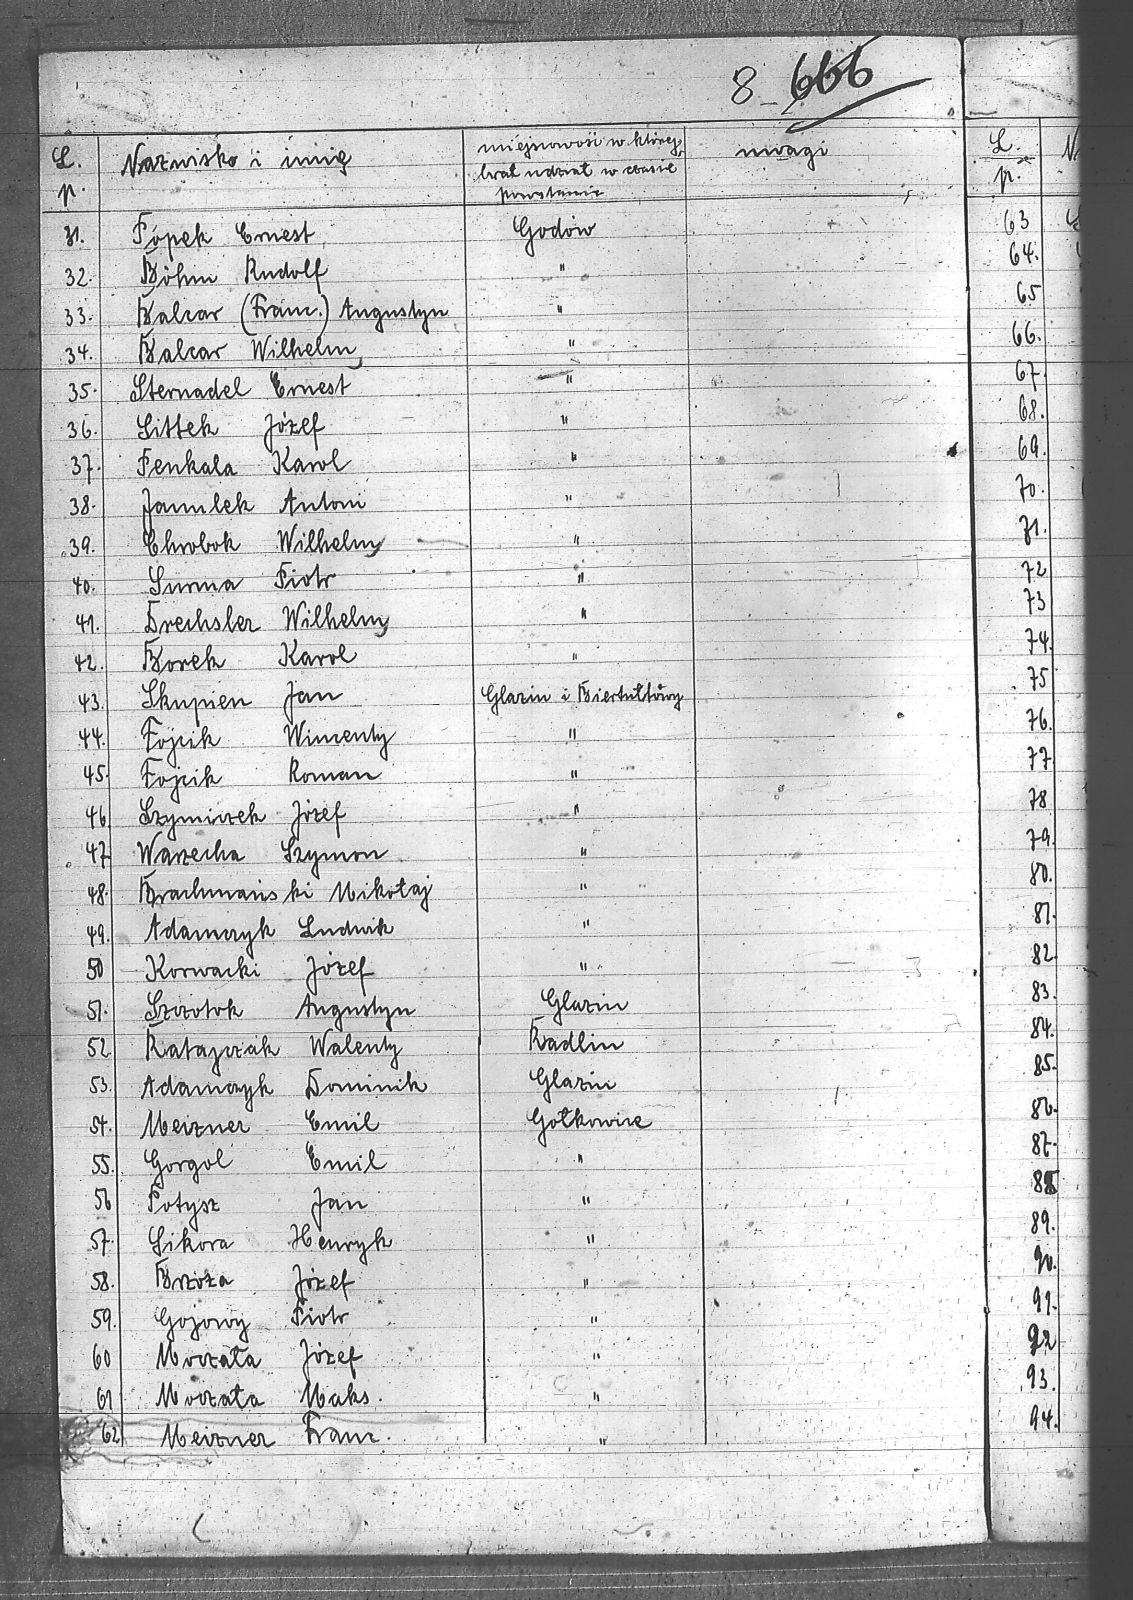 8 666
L. p. Nazwisko i imię miejscowość w której brał udział w czasie powstania uwagi
31. Popek Ernest Godów
32. Böhm Rudolf "
33. Balcar (Franc.) Augustyn "
34. Balcar Wilhelm "
35. Sternadel Ernest "
36. Sittek Józef "
37. Penkala Karol "
38. Janulek Antoni "
39. Chrobok Wilhelm "
40. Surma Piotr "
41. Drechsler Wilhelm "
42. Borek Karol "
43. Skupień Jan Glazin i Biertułtowy
44. Fojcik Wincenty "
45. Fojcik Roman "
46. Szymiczek Józef "
47. Warzecha Szymon "
48. Brachmański Mikołaj "
49. Adamczyk Ludwik "
50 Korwacki Józef "
51. Szczotok Augustyn Glazin
52. Ratajczak Walenty Radlin
53. Adamczyk Dominik Glazin
54. Meizner Emil Gołkowice
55. Gorgol Emil "
56 Potysz Jan "
57. Sikora Henryk "
58. Brzoza Józef "
59. Gojowy Piotr "
60 Moczała Józef "
61 Moczała Maks. "
62 Meizner Franc. "
L. p. N
63
64.
65
66.
67.
68.
69.
70.
71.
72
73
74.
75
76.
77
78
79.
80.
81.
82
83.
84.
85.
86.
87.
88
89.
90.
91.
92
93.
94.